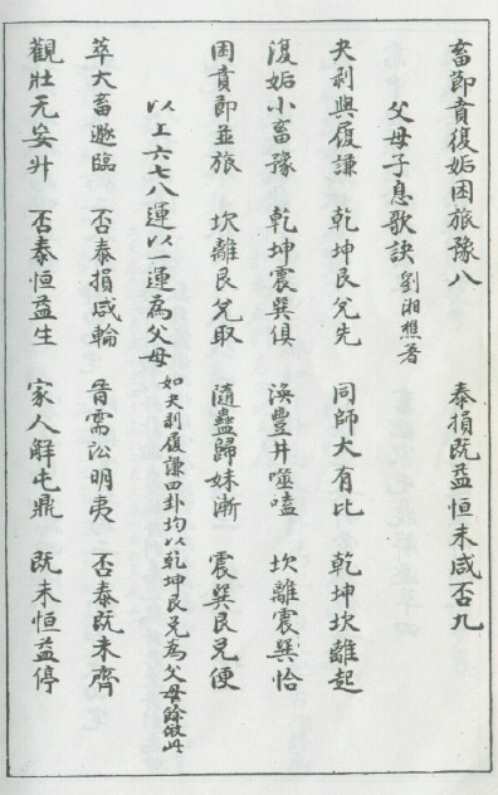 畜節賁復姤困旅豫八　泰損既益恒未咸否九
父母子息歌訣　劉湘樵著
夬剝與履謙　乾坤艮兌先　同師大有比　乾坤坎離起
復姤小畜豫　乾坤震巽俱　渙豐井噬嗑　坎離震巽恰
困賁節並旅　坎離艮兌取　隨蠱歸妹漸　震巽艮兌便
以上六七八運以一運為父母　如夬剝履謙四卦均以乾坤艮兌為父母餘倣此
萃大畜遯臨　否泰損咸輪　晉需訟明夷　否泰既未齊
觀壯无妄升　否泰恒益生　家人解屯鼎　既未恒益停